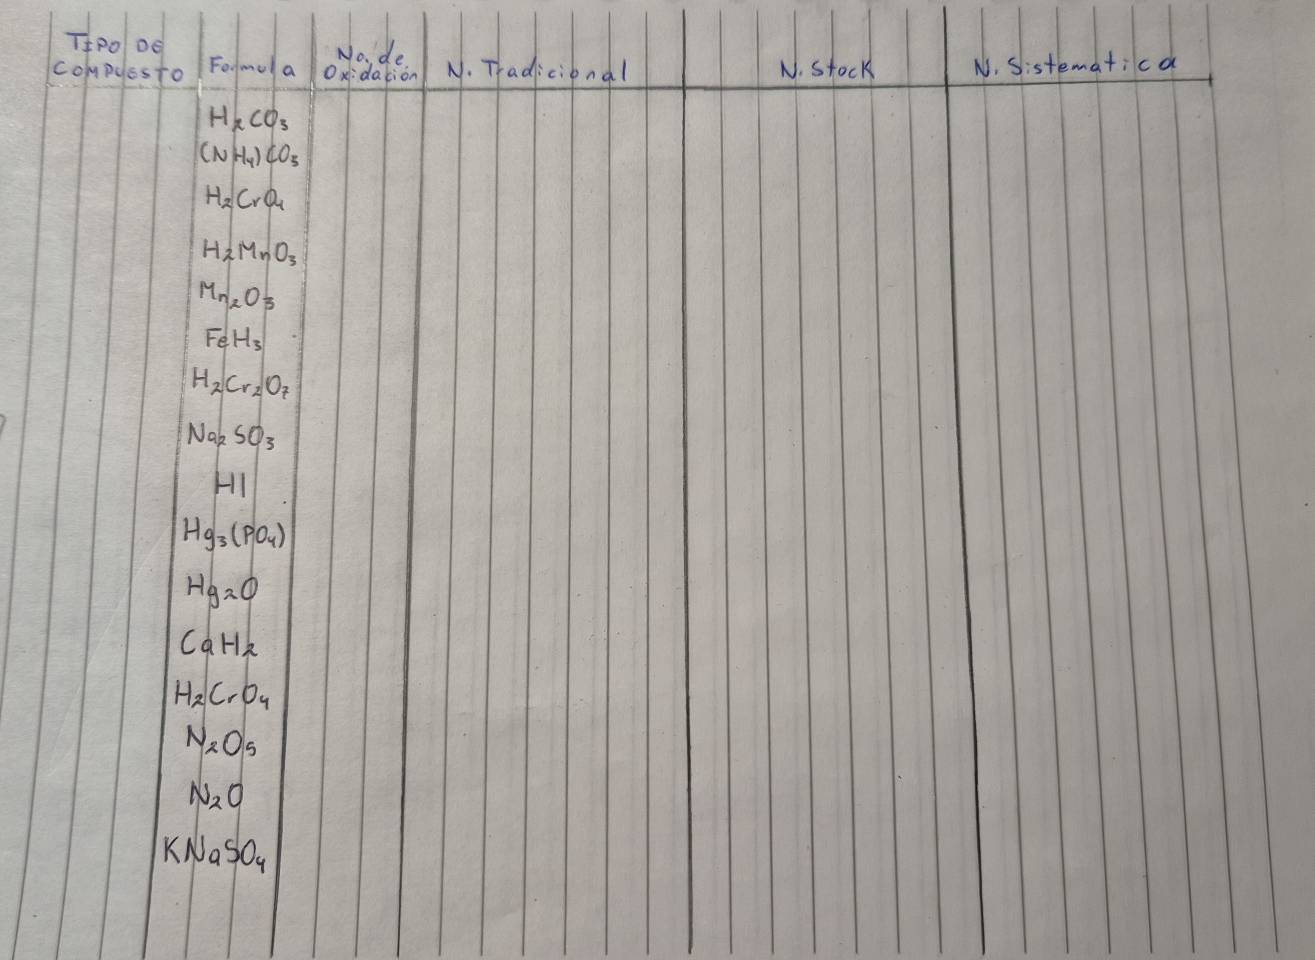 TIPO DE COMPUESTO Formula No. de Oxidación N. Tradicional N. Stock N. Sistematica
H₂CO₃
(NH₄)CO₃
H₂CrO₄
H₂MnO₃
Mn₂O₃
FeH₃
H₂Cr₂O₇
Na₂SO₃
HI
Hg₃(PO₄)
Hg₂O
CaH₂
H₂CrO₄
N₂O₅
N₂O
KNaSO₄